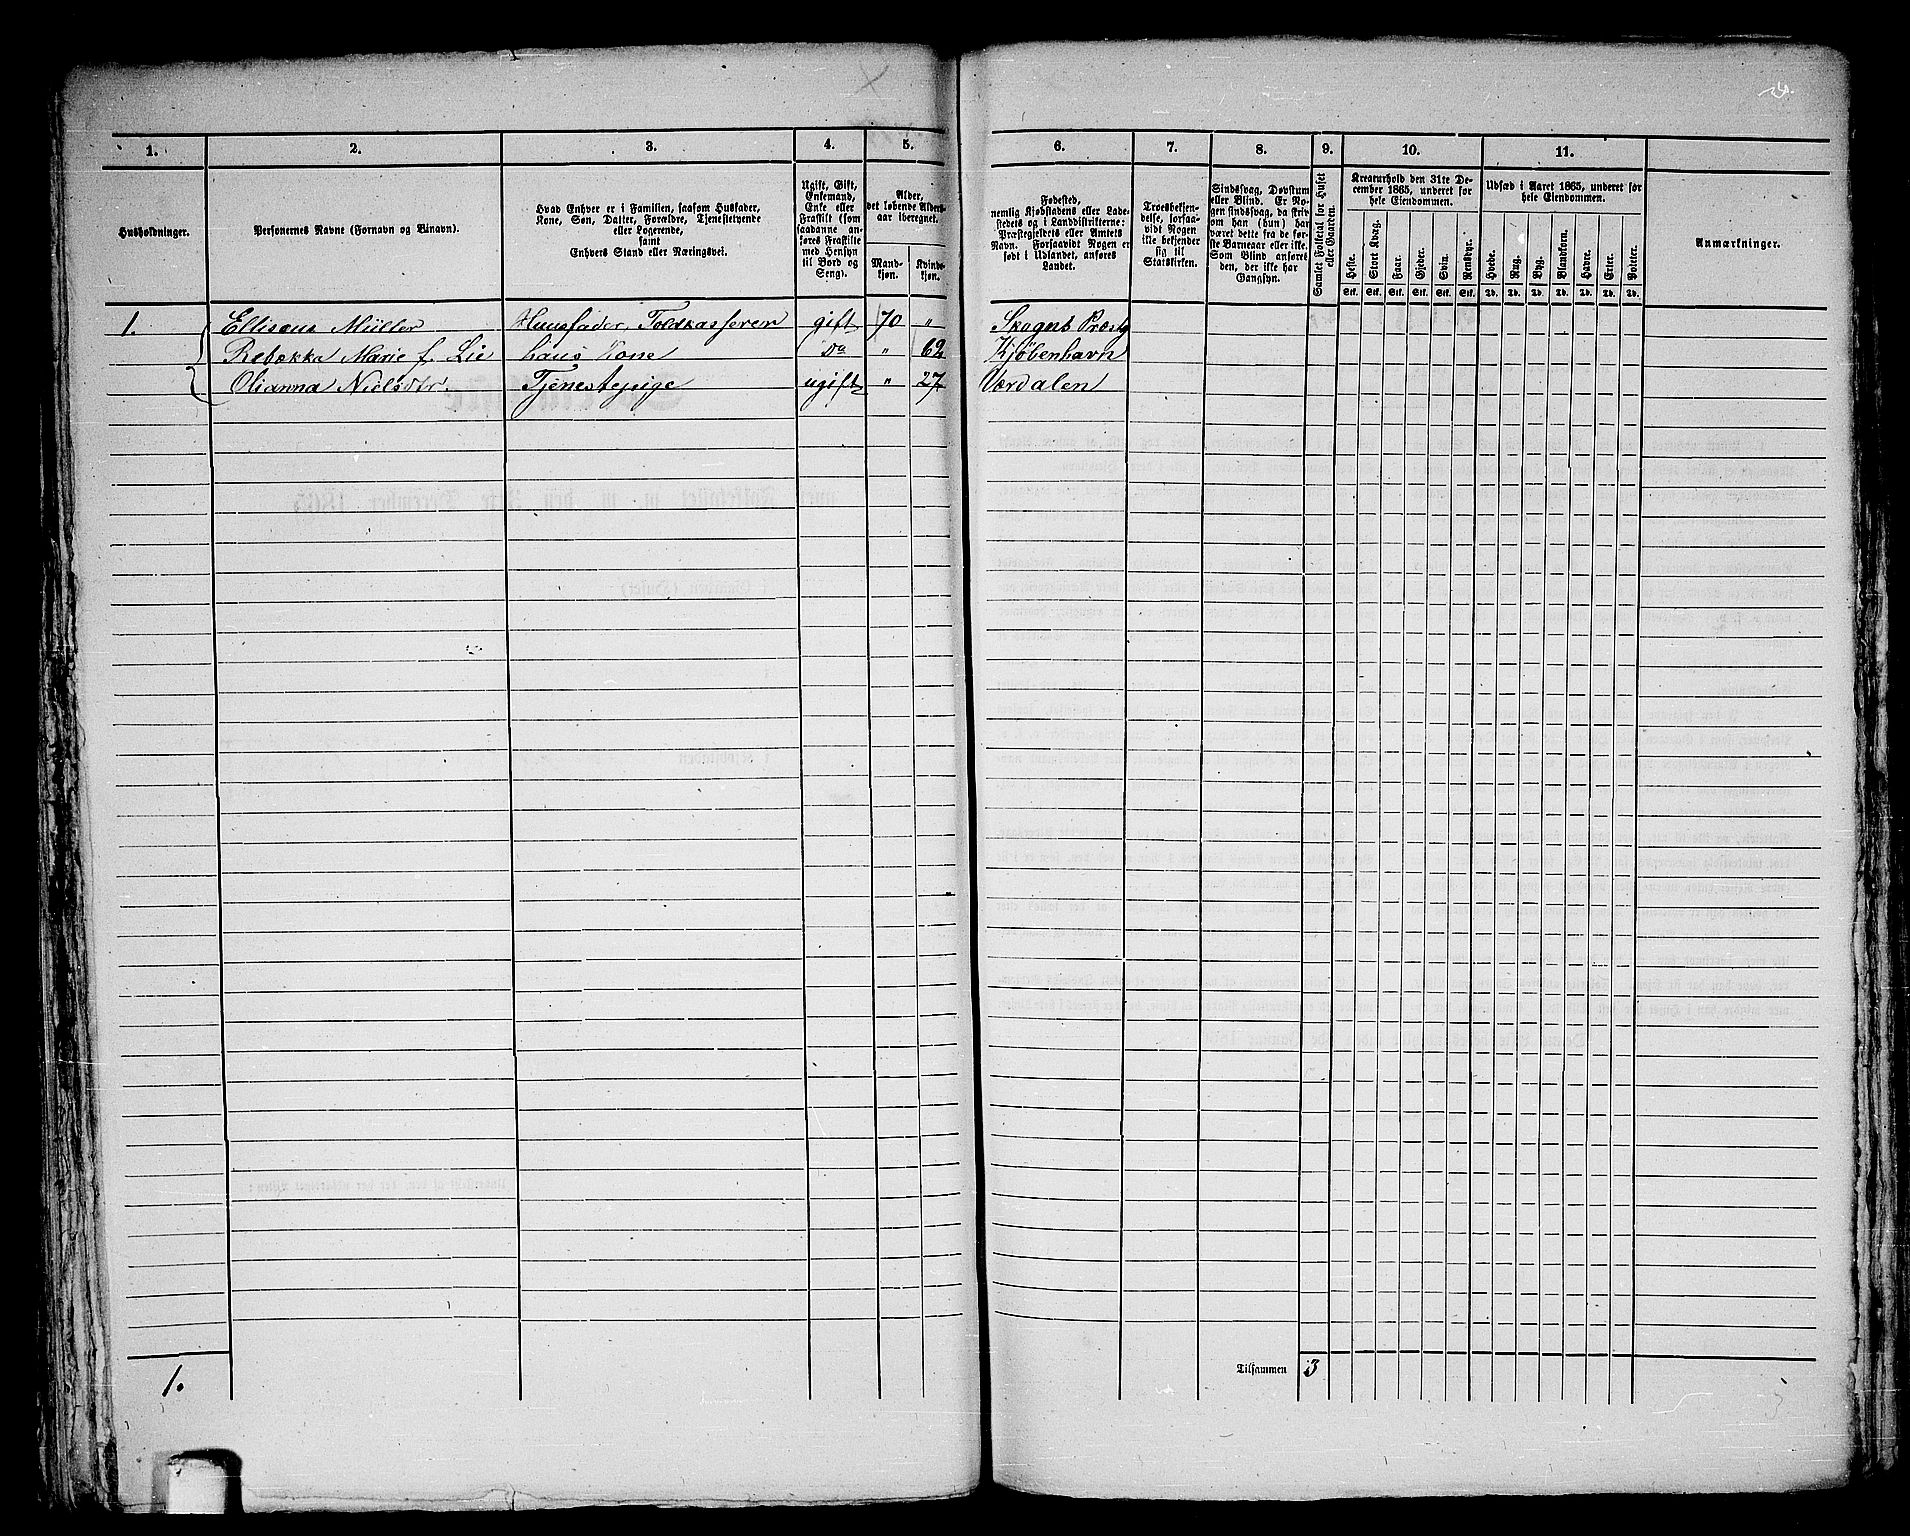 1. 2. 3. 4. 5. 6. 7. 8. 9. 10. 11.
Husholdninger.
Personernes Navne (Fornavn og Binavn).
Hvad Enhver er i Familien, saasom Husfader,
Kone, Søn, Datter, Forældre, Tjenestetyende
eller Logerende,
samt
Enhvers Stand eller Næringsvei.
Ugift, Gift,
Enkemand,
Enke eller
Fraskilt (som
saadanne an-
føres Fraskilte
med Hensyn
til Bord og
Seng).
Alder,
det løbende Alders-
aar iberegnet.
Mand-
kjøn.
Kvinde-
kjøn.
Fødested,
nemlig Kjøbstadens eller Lade-
stedets og i Landdistrikterne:
Præstegjeldets eller Amtets
Navn. Forsaavidt Nogen er
født i Udlandet, anføres
Landet.
Troesbekjen-
delse, forsaa-
vidt Nogen
ikke bekjender
sig til
Statskirken.
Sindssvag, Døvstum
eller Blind. Er No-
gen sindssvag, da skriv
om han (hun) har
været dette fra de før-
ste Barneaar eller ikke.
Som Blind anføres
den, der ikke har
Gangsyn.
Samlet Folketal for Huset
eller Gaarden.
Kreaturhold den 31te De-
cember 1865, underet for
hele Eiendommen.
Heste. Stort Kvæg. Faar. Gjeder. Svin. Rensdyr.
Stk. Stk. Stk. Stk. Stk. Stk.
Udsæd i Aaret 1865, underet for
hele Eiendommen.
Hvede. Rug. Byg. Blandkorn. Havre. Erter. Poteter.
Td. Td. Td. Td. Td. Td. Td.
Anmærkninger.
1. Ellisæus Müller Huusfader, Toldkasserer gift 70 " Skogns Præstg
Rebekka Marie f. Lie hans Kone Do " 62 Kjøbenhavn
Olianna Nielsdtr. Tjenestepige ugift " 27 Værdalen
1.
Tilsammen 3